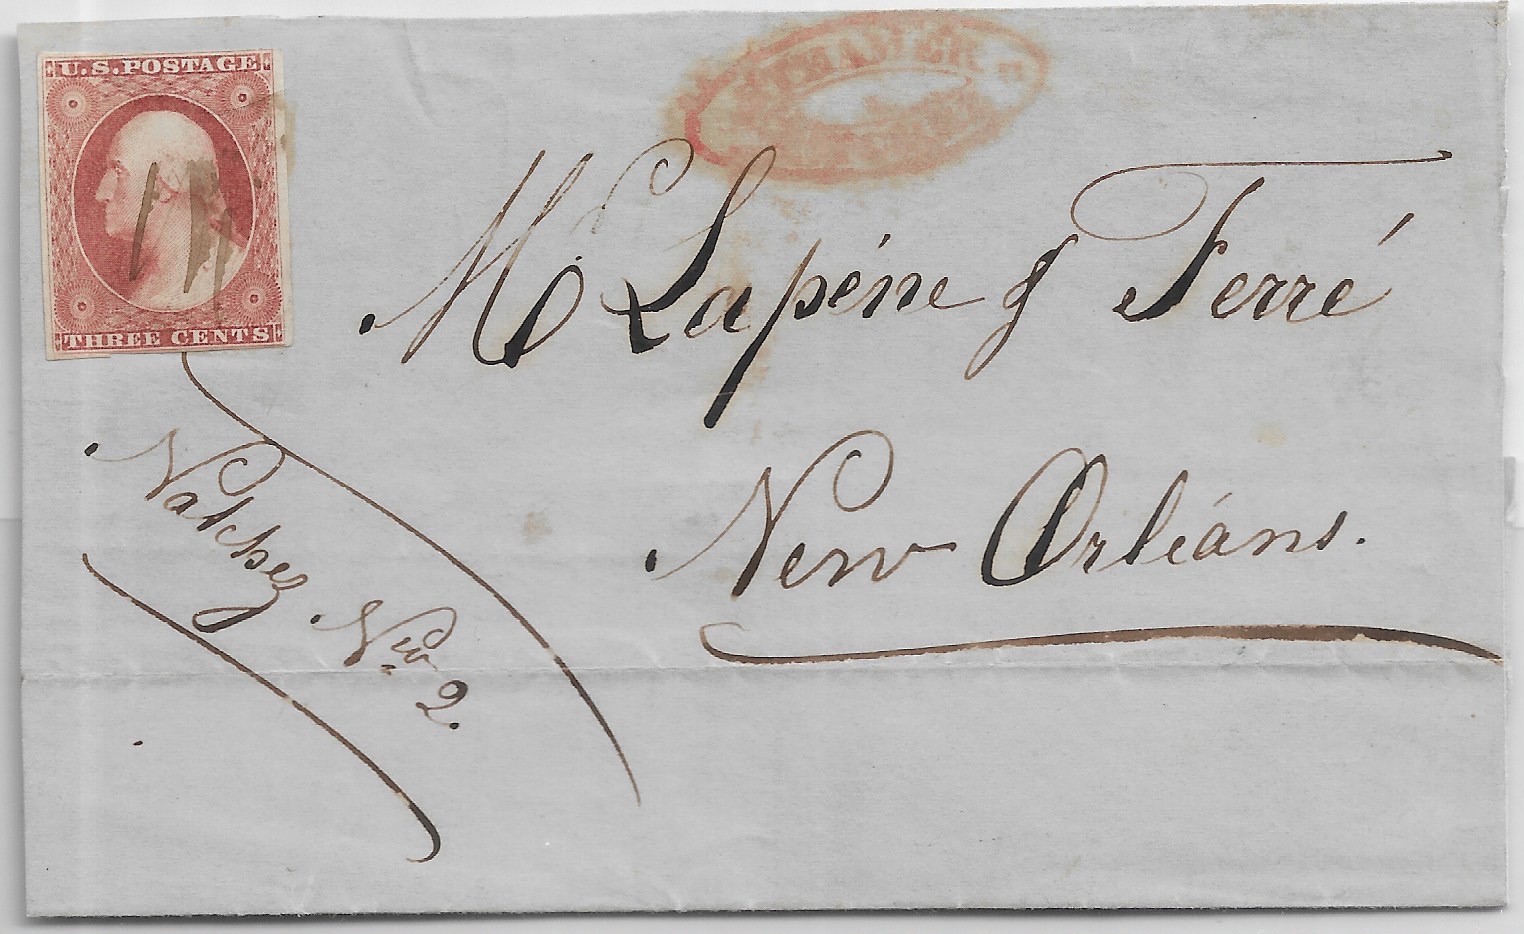 U.S. POSTAGE
THREE CENTS
STEAMER
M Lapéne & Ferré
New Orléans.
Natchez No. 2.